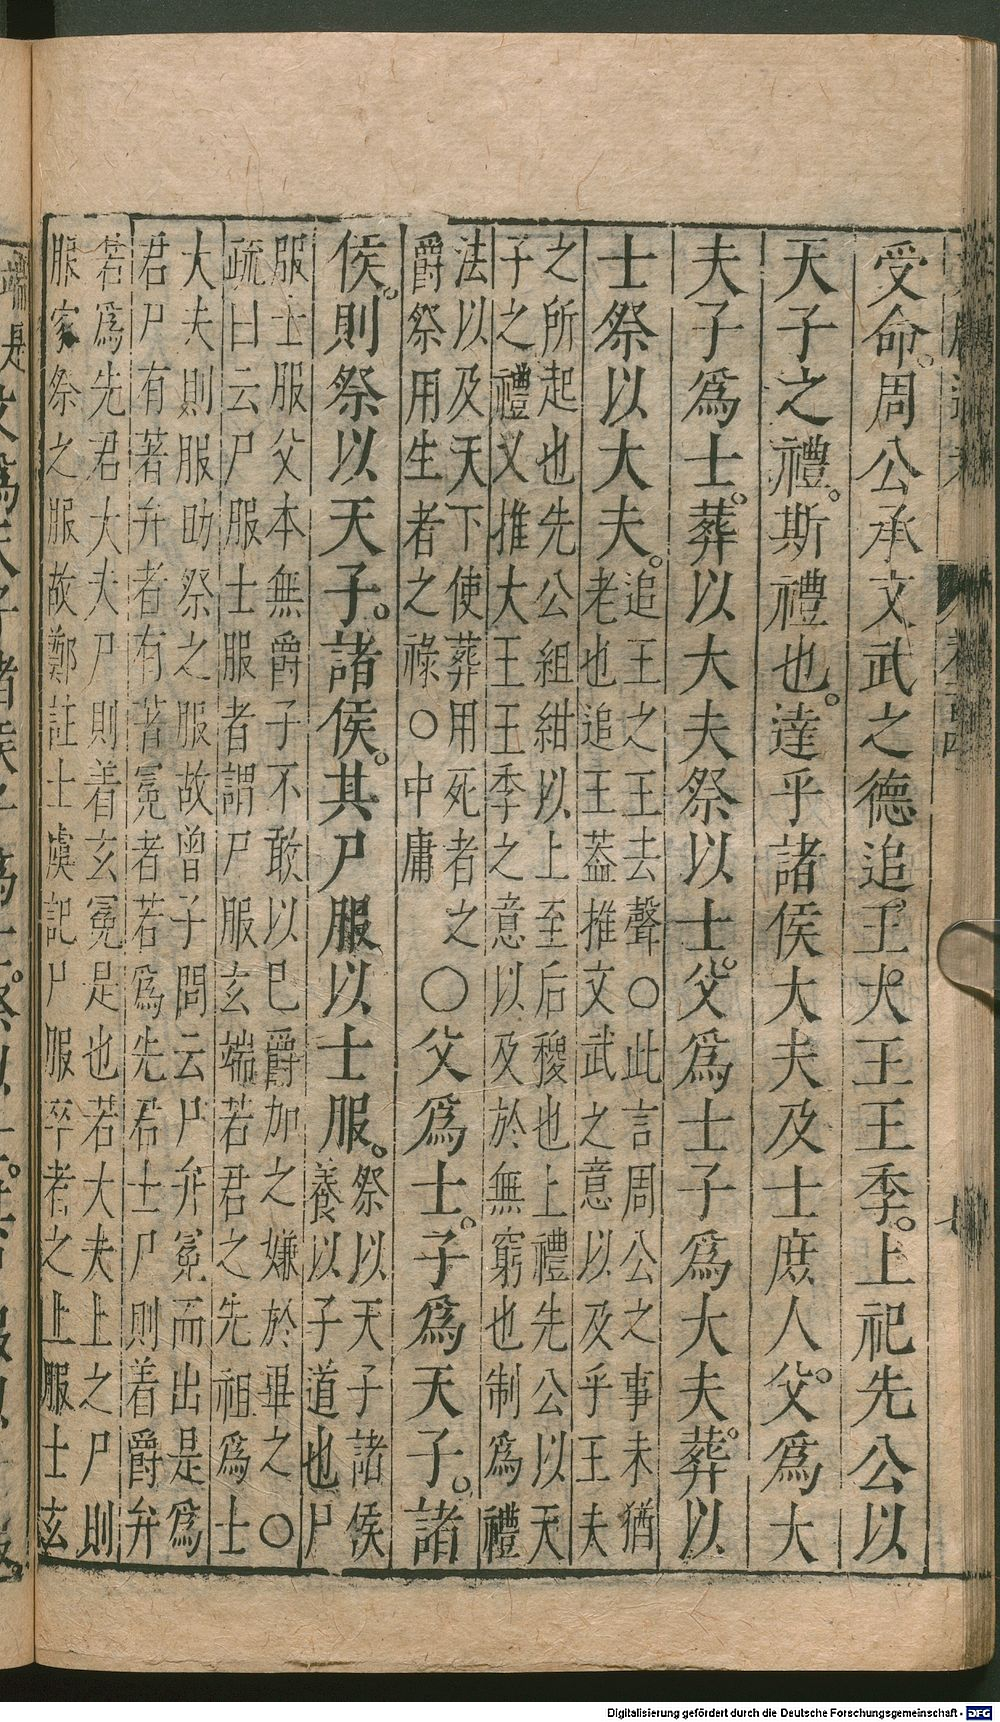 受命。周公承文武之德追王大王王季。上祀先公以
天子之禮。斯禮也。達乎諸侯大夫及士庶人。父爲大
夫子爲士。葬以大夫祭以士。父爲士子爲大夫。葬以
士祭以大夫。
追王之王去聲○此言周公之事未猶
老也追王葢推文武之意以及乎王夫
之所起也先公組紺以上至后稷也上禮先公以天
子之禮乂推大王王季之意以及於無窮也制爲禮
法以及天下使葬用死者之
爵祭用生者之祿○中庸
○父爲士。子爲天子。諸
侯。則祭以天子。諸侯。其尸服以士服。
祭以天子諸侯
養以子道也尸
服士服父本無爵子不敢以巳爵加之嫌於畢之○
疏曰云尸服士服者謂尸服玄端若君之先祖爲士
大夫則服助祭之服故曾子問云尸弁冕而出是爲
君尸有著弁者有著冕者若爲先君士尸則着爵弁
若爲先君大夫尸則着玄冕是也若大夫上之尸則
服家祭之服故鄭註士虞記尸服卒者之上服士玄
Digitalisierung gefördert durch die Deutsche Forschungsgemeinschaft - DFG